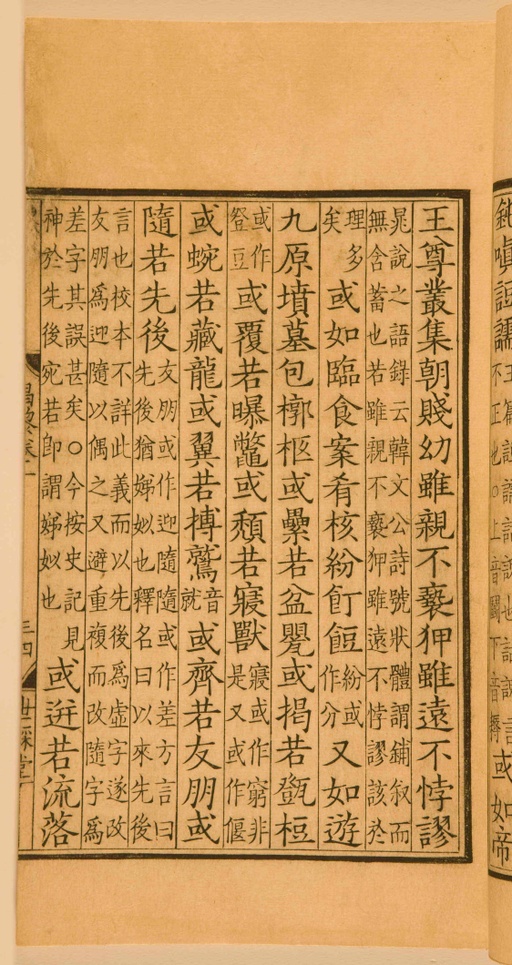 王尊叢集朝賤幼雖親不褻狎雖遠不悖謬
晁說之語錄云韓文公詩號狀體謂鋪叙而
無含蓄也若雖親不褻狎雖遠不悖謬該於
理多
矣
或如臨食案肴核紛飣餖
紛或
作分
又如遊
九原墳墓包槨柩或纍若盆甖或揭若㽅梪
或作
豋豆
或覆若曝鼈或頹若寢獸
寢或作窮非
是又或作偃
或蜿若藏龍或翼若搏鷲
音
就
或齊若友朋或
隨若先後
友朋或作迎隨隨或作差方言曰
先後猶娣姒也釋名曰以來先後
言也校本不詳此義而以先後爲虛字遂改
友朋爲迎隨以偶之又避重複而改隨字爲
差字其誤甚矣○今按史記見
神於先後宛若卽謂娣姒也
或迸若流落
三四
世綵堂
或如帝